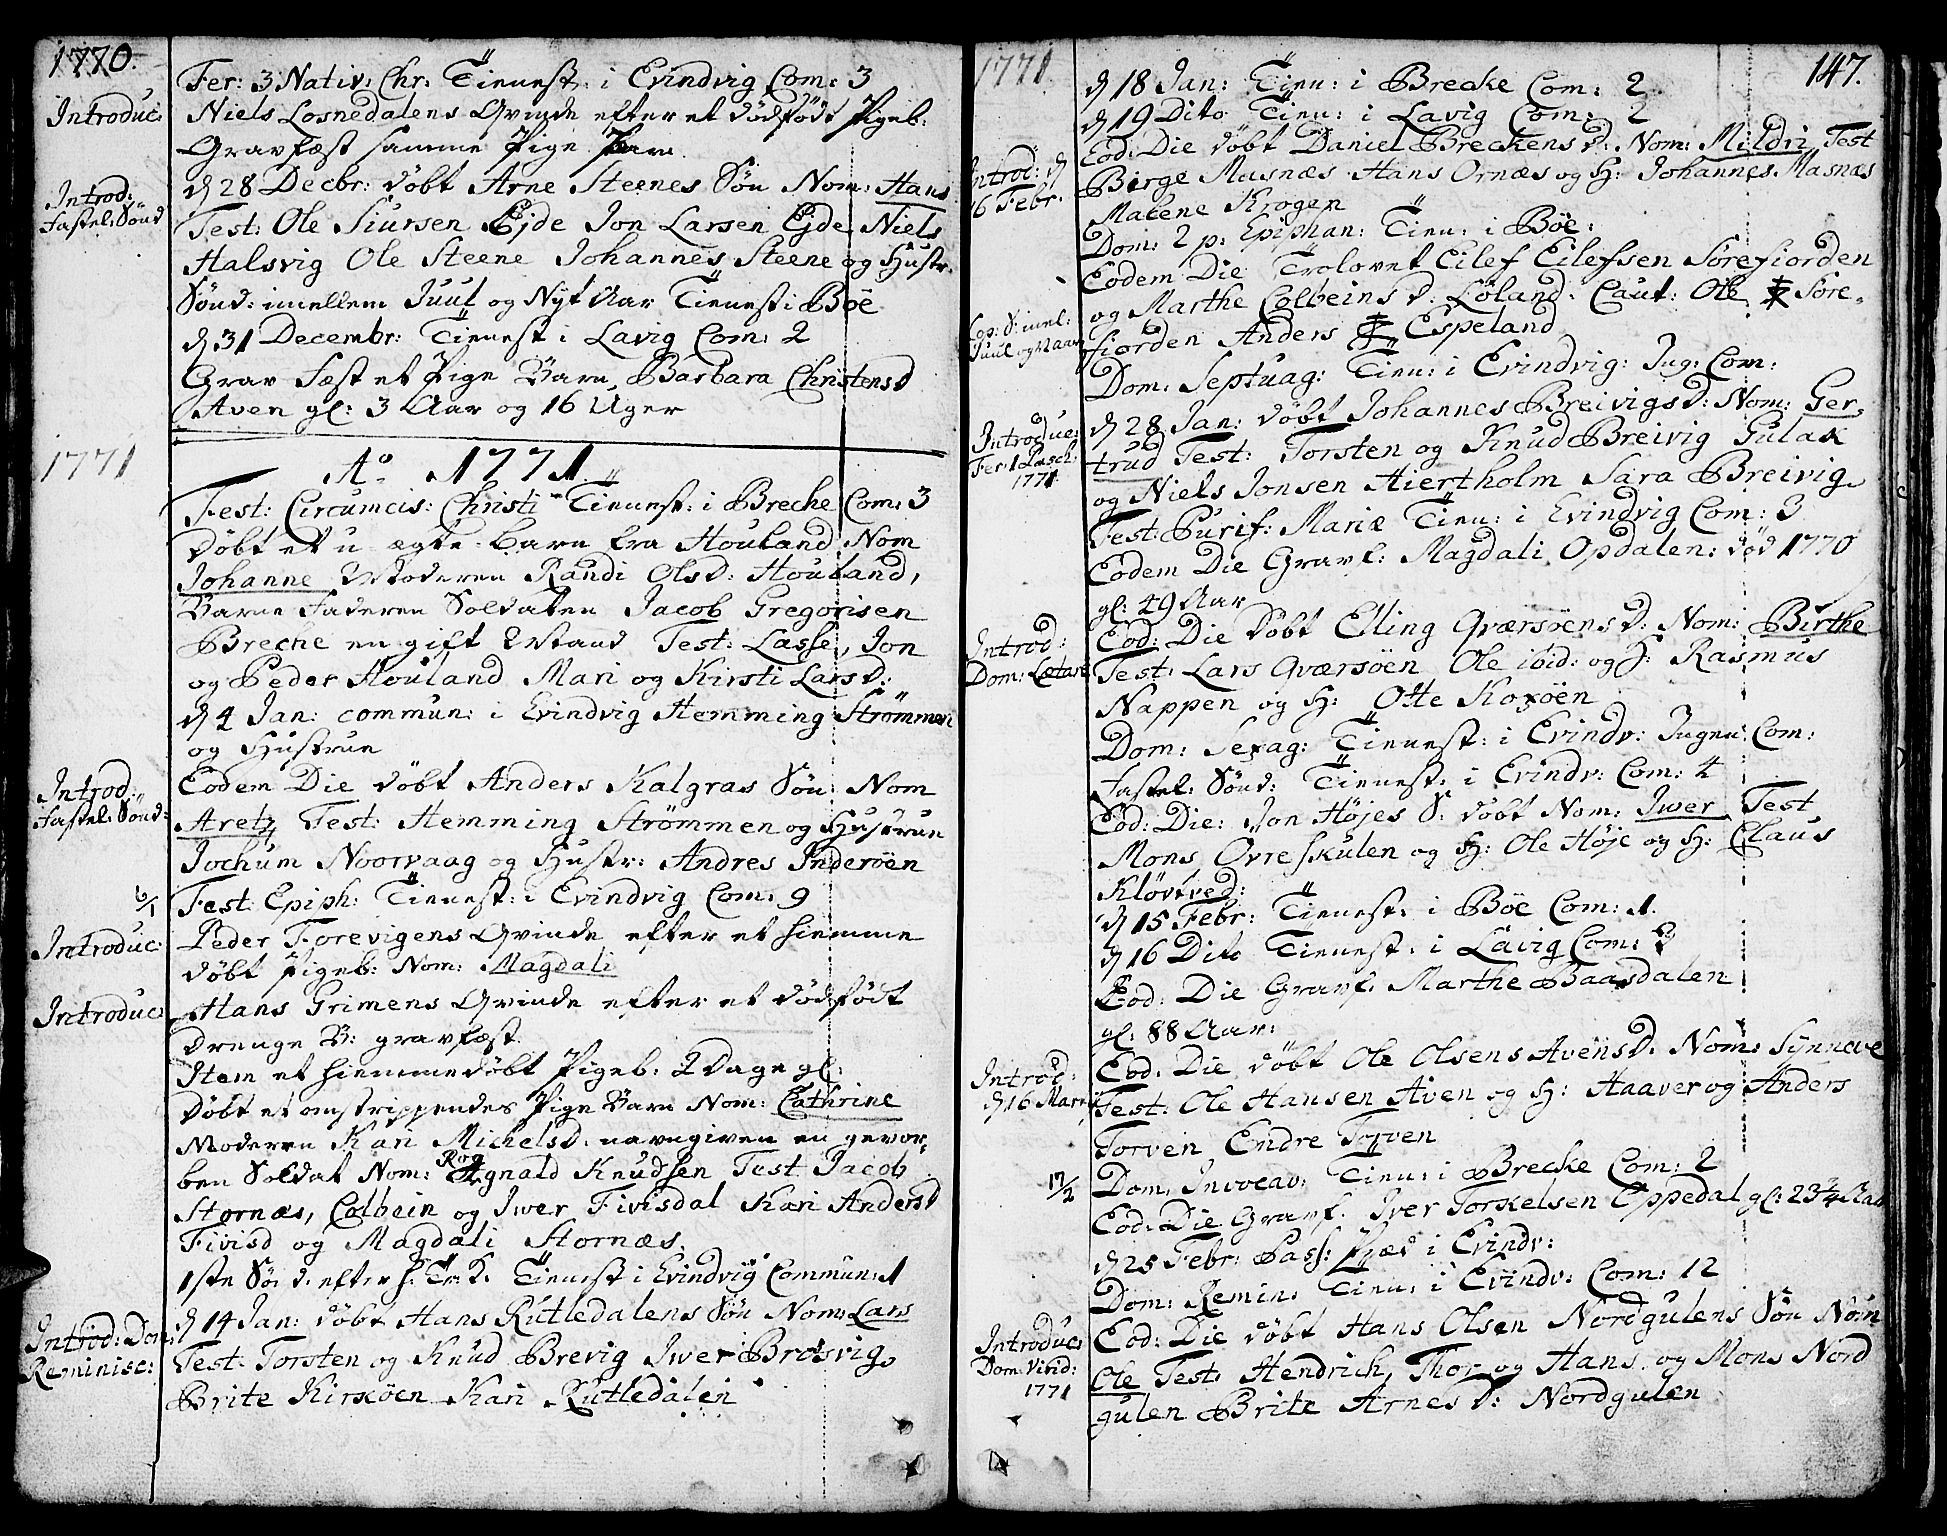 1770.
Fer: 3 Nativ: Chr: Tienest: i Evindvig Com: 3
Introduc: Niels Losnedalens Qvinde efter et dødfødt Pigeb:
Gravfæst samme Pige Barn
Introd: Fastel: Sönd
d 28 Decbr: döbt Arne Steenes Sön Nom: Hans
Test: Ole Siursen Ejde Jon Larsen Ejde Niels
Halsvig Ole Steene Johannes Steene og Hustr:
Sönd: imellem Juul og Nyt Aar Tienest i Böe
d 31 Decembr: Tienest i Lavig Com: 2
Grav fæst et Pige Barn Barbara Christensd
Aven gl: 3 Aar og 16 Uger
1771
Ao 1771
Fest: Circumcis: Christi Tienest: i Breche Com: 3
döbt et u-ægte Barn fra Houland Nom
Johanne Moderen Randi Olsd: Houland,
Barne Faderen Soldaten Jacob Gregorisen
Breche en gift Mand Test: Lasse, Jon
og Peder Houland Mari og Kirsti Larsd:
d 4 Jan: commun: i Evindvig Hemming Strömmen
og Hustrue
Introd: Fastel: Sönd:
Eodem Die döbt Anders Kalgras Sön Nom
Aretz Test: Hemming Strömmen og Hustrue
Jochum Noorvaag og Hustr: Andres Inderöen
6/1 Fest: Epiph: Tienest: i Evindvig Com: 9
Introduc: Peder Forevigens Qvinde efter et hiemme
döbt Pigeb: Nom: Magdali
Introduc: Hans Grimens Qvinde efter et dödfödt
drenge B: gravfæst
Item et hiemmedöbt Pigeb: 2 Dage gl:
döbt et omstrippendes Pige Barn Nom: Cathrine
Moderen Kari Michelsd: navngiven en gevor-
ben Soldat Nom: Rognald Knudsen Test Jacob
Stornæs, Colbein og Iwer Fivisdal Kari Andersd
Fivisd og Magdali Stornæs
1ste Sönd: efter H: Tr: K: Tienest i Evindvig Commun: 1
Introd: Dom: Reminisc:
d 14 Jan: döbt Hans Rutledalens Sön Nom: Lars
Test: Torsten og Knud Brevig Iwer Brosvig,
Brite Kirköen Kari Rutledalen
1771
147.
d 18 Jan: Tien: i Brecke Com: 2
d 19 Dito Tien: i Lavig Com: 2
Introd: d 16 Febr.
Eod: Die döbt Daniel Breckens d: Nom: Mildri Test
Börge Masnæs Hans Ornæs og H: Johannes Masnæs
Malene Krogen
Dom: 2 p: Epiphan: Tien: i Böe:
Eodem Die Trolovet Eilef Eilefsen Sörefiorden
Cop: S: imel: Juul og N Aar
og Marthe Colbeinsd: Löland: Caut: Ole Söre-
fiorden Anders Espeland
Dom: Septuag: Tien: i Evindvig: Ing: Com:
Introduc: Fer: 1 Pasch: 1771
d 28 Jan: döbt Johannes Breivigs d: Nom: Ger-
trud Test: Torsten og Knud Breivig Gulak
og Niels Jonsen Hiertholm Sara Breivig
Fest: Purif: Mariæ Tien: i Evindvig Com: 3
Eodem Die Gravf: Magdali Opdalen: död 1770
gl: 49 Aar
Introd: Dom: Lætare
Eod: Die döbt Elling Qværsöens d: Nom: Birthe
Test: Lars Qværsöen Ole ibid: og H: Rasmus
Nappen og H: Otte Koxöen
Dom: Sexag: Tienest: i Evindv: Ingen Com:
Fastel: Sönd: Tienest: i Evindv: Com: 4
Eod: Die: Jon Höjes S: döbt Nom: Iwer Test
Mons Övreskulen og H: Ole Höje og H: Claus
Klövtved:
d 15 Febr: Tienest: i Böe Com: 1.
d 16 Dito Tienest: i Lavig Com:
Eod: Die Gravf: Marthe Baasdalen
gl: 88 Aar:
Introd: d 16 Marti
Eod: Die döbt Ole Olsens Avensd: Nom: Synneve
Test: Ole Hansen Aven og H: Haaver og Anders
Torven Endre Torven
17/2 Dom: Invocav: Tien: i Brecke Com: 2
Eod: Die Gravf: Iver Torkelsen Oppedal gl: 23 3/4 Aar
d 25 Febr: Pass: Præd i Evindv:
Dom: Remin: Tien: i Evindv: Com: 12
Introduc: Dom: Vivid: 1771
Eod: Die döbt Hans Olsen Nordgulens Sön Nom
Ole Test: Hendrich, Thor og Hans og Mons Nord
gulen Brite Arnesd: Nordgulen